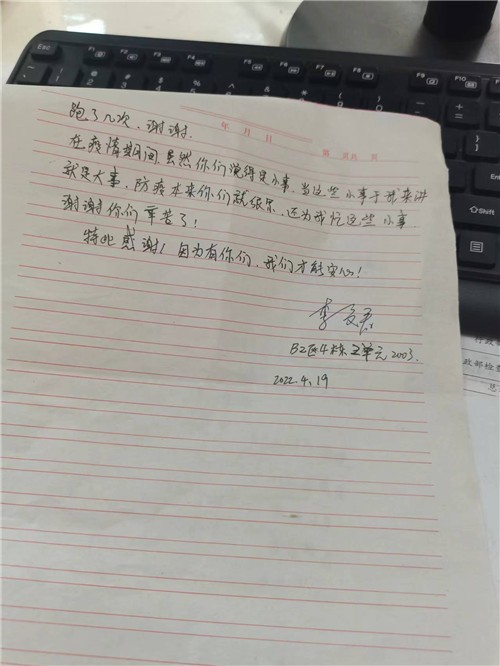 年 月 日 第 页 共 页
跑了几次,谢谢.
在疫情期间,虽然你们觉得是小事,当这些小事于我来讲
就是大事,防疫本来你们就很累,还为我忙这些小事
谢谢你们辛苦了!
特此感谢!因为有你们,我们才能安心!
李
B2区4栋 单元2003.
2022.4.19
Esc F1 F2 F3 F4 F5 F6 F7 F8 F9 F10
Shift
行政
政部检查